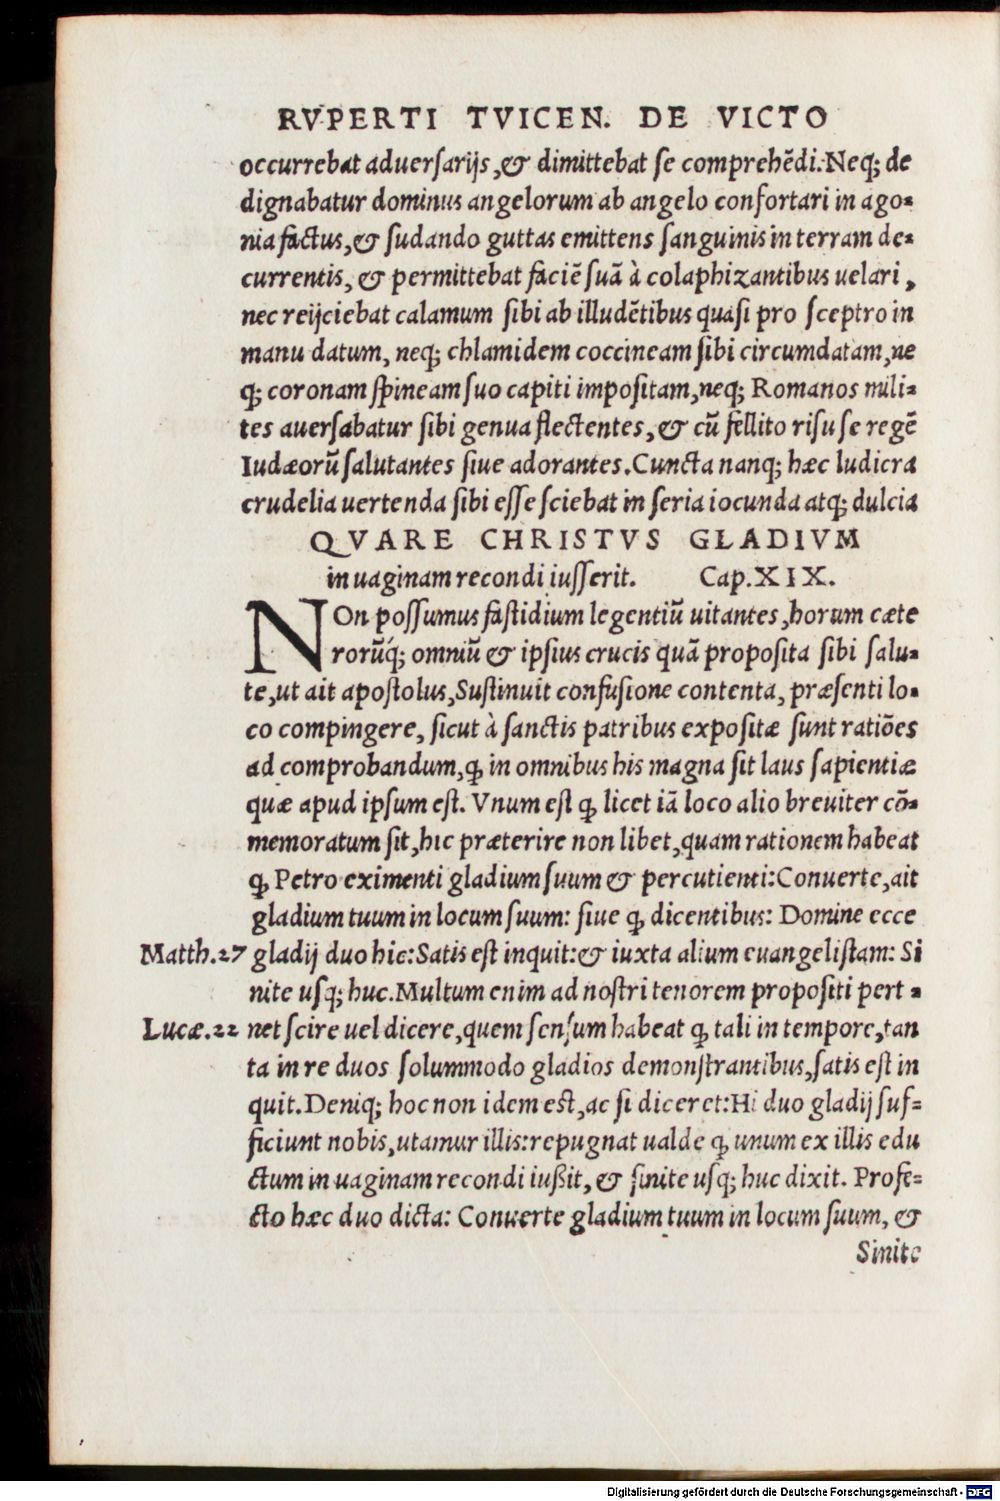 RVPERTI TVICEN. DE VICTO
occurrebat aduersarijs, & dimittebat se comprehēdi. Neq; de
dignabatur dominus angelorum ab angelo confortari in ago=
nia factus, & sudando guttas emittens sanguinis in terram de=
currentis, & permittebat faciē suā à colaphizantibus uelari,
nec reijciebat calamum sibi ab illudētibus quasi pro sceptro in
manu datum, neq; chlamidem coccineam sibi circumdatam, ne
q; coronam spineam suo capiti impositam, neq; Romanos mili=
tes auersabatur sibi genua flectentes, & cū fellito risu se regē
Iudæorū salutantes siue adorantes. Cuncta nanq; hæc ludicra
crudelia uertenda sibi esse sciebat in seria iocunda atq; dulcia
QVARE CHRISTVS GLADIVM
in uaginam recondi iusserit. Cap. XIX.
NOn possumus fastidium legentiū uitantes, horum cæte
rorūq́; omniū & ipsius crucis quā proposita sibi salu=
te, ut ait apostolus, Sustinuit confusione contenta, præsenti lo=
co compingere, sicut à sanctis patribus expositæ sunt ratiōes
ad comprobandum, ꝙ in omnibus his magna sit laus sapientiæ
quæ apud ipsum est. Vnum est ꝙ licet iā loco alio breuiter cō=
memoratum sit, hic præterire non libet, quam rationem habeat
ꝙ Petro eximenti gladium suum & percutienti: Conuerte, ait
gladium tuum in locum suum: siue ꝙ dicentibus: Domine ecce
Matth. 27 gladij duo hic: Satis est inquit: & iuxta alium euangelistam: Si
nite usq; huc. Multum enim ad nostri tenorem propositi pert=
Lucæ. 22 net scire uel dicere, quem sensum habeat ꝙ tali in tempore, tan
ta in re duos solummodo gladios demonstrantibus, satis est in
quit. Deniq; hoc non idem est, ac si diceret: Hi duo gladij suf=
ficiunt nobis, utamur illis: repugnat ualde ꝙ unum ex illis edu
ctum in uaginam recondi iußit, & sinite usq; huc dixit. Profe=
cto hæc duo dicta: Conuerte gladium tuum in locum suum, &
Sinite
Digitalisierung gefördert durch die Deutsche Forschungsgemeinschaft - DFG